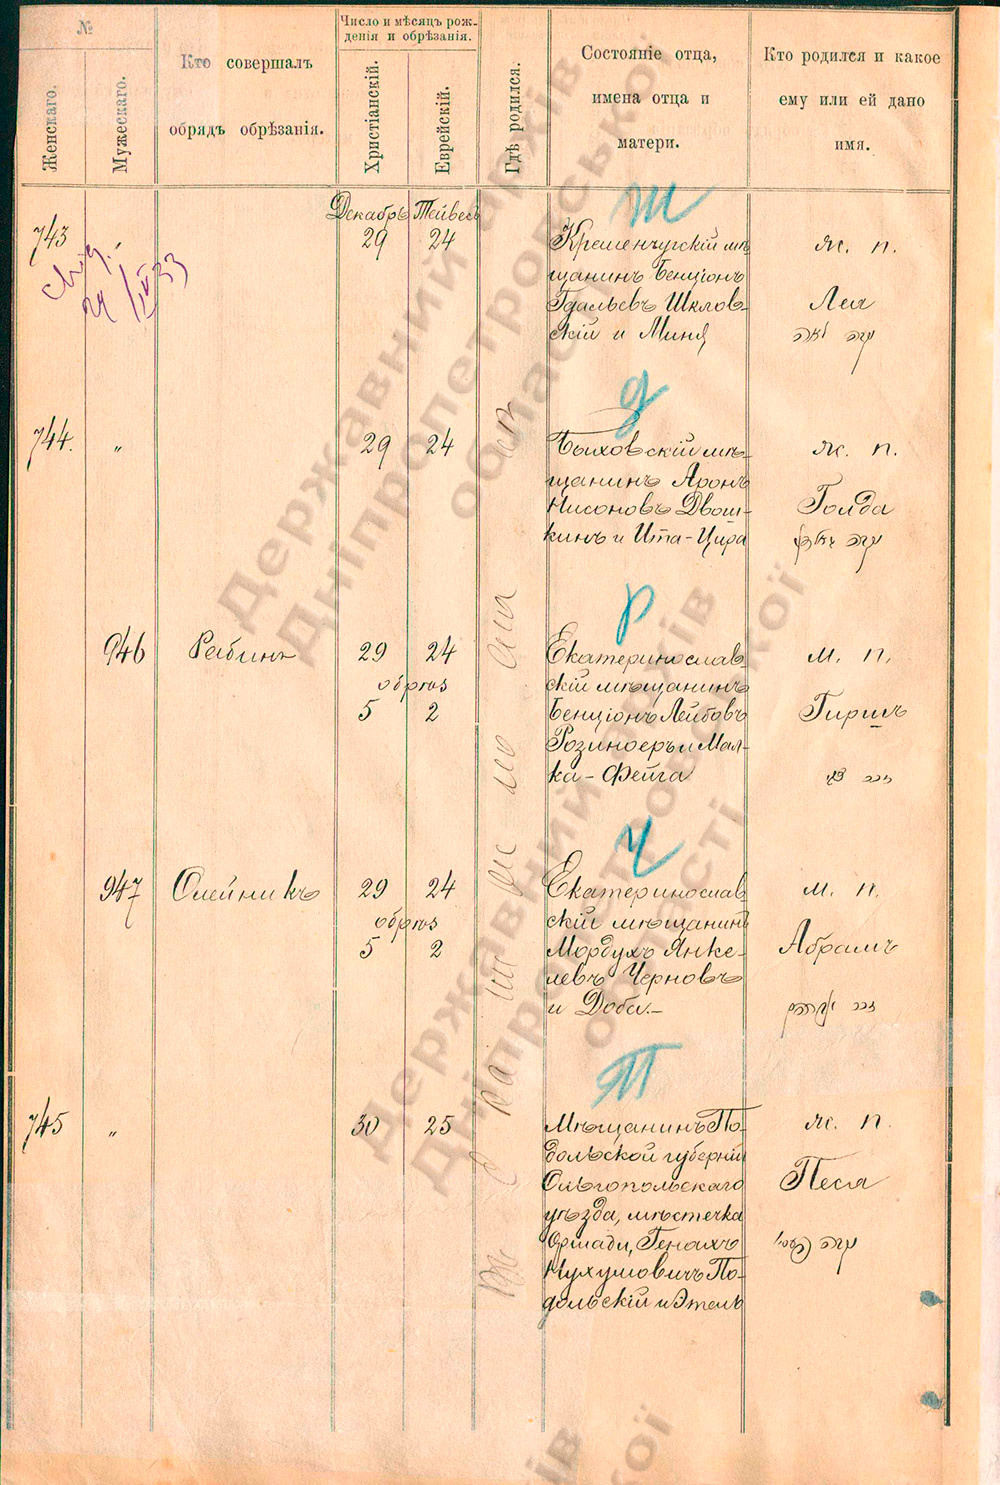 №
Женскаго.
Мужескаго.
Кто совершалъ
обрядъ обрѣзанія.
Число и мѣсяцъ рож-
денія и обрѣзанія.
Христіанскій.
Еврейскій.
Гдѣ родился.
Состояніе отца,
имена отца и
матери.
Кто родился и какое
ему или ей дано
имя.
Декабрь Тейвесъ
743 „ 29 24
Ш
Кременчугскій мѣ-
щанинъ Бенціонъ
Гдальевъ Шклов-
скій и Миня
ж. п.
Лея
744. „ 29 24
Д
Быховскій мѣ-
щанинъ Аронъ
Нисоновъ Двош-
кинъ и Ита-Цира
ж. п.
Голда
946 29 24
обрѣз
5 2
Р
Екатеринослав-
скій мѣщанинъ
Бенціонъ Лейбовъ
Розиноеръ и Мал-
ка-Фейга
м. п.
Гиршъ
947 Олейникъ 29 24
обрѣз
5 2
Ч
Екатеринослав-
скій мѣщанинъ
Мордухъ Янке-
левъ Черновъ
и Доба.-
м. п.
Абрамъ
745 „ 30 25
П
Мѣщанинъ По-
дольской губерніи
Ольгопольскаго
уѣзда, мѣстечка
Генахъ
Нухумовичъ По-
дольскій и Этель
ж. п.
Песя
Державний архів
Дніпропетровської
області
Державний архів
Дніпропетровської
області